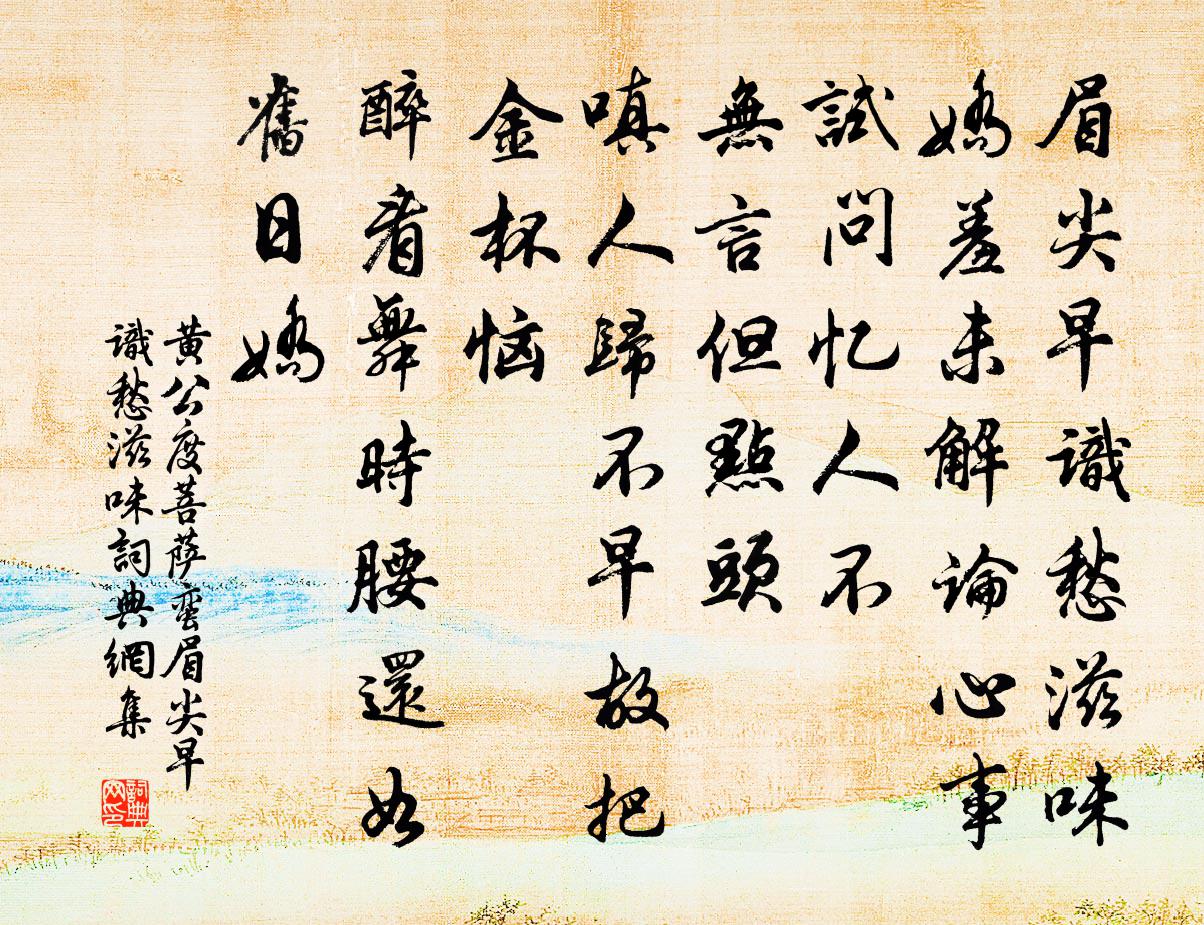 眉尖早識愁滋味
嬌羞未解論心事
試問忆人不
無言但點頭
嗔人歸不早故把
金杯恼
醉看舞時腰還如
舊日嬌
黄公度菩萨蛮眉尖早
識愁滋味詞典網集
詞典
网印